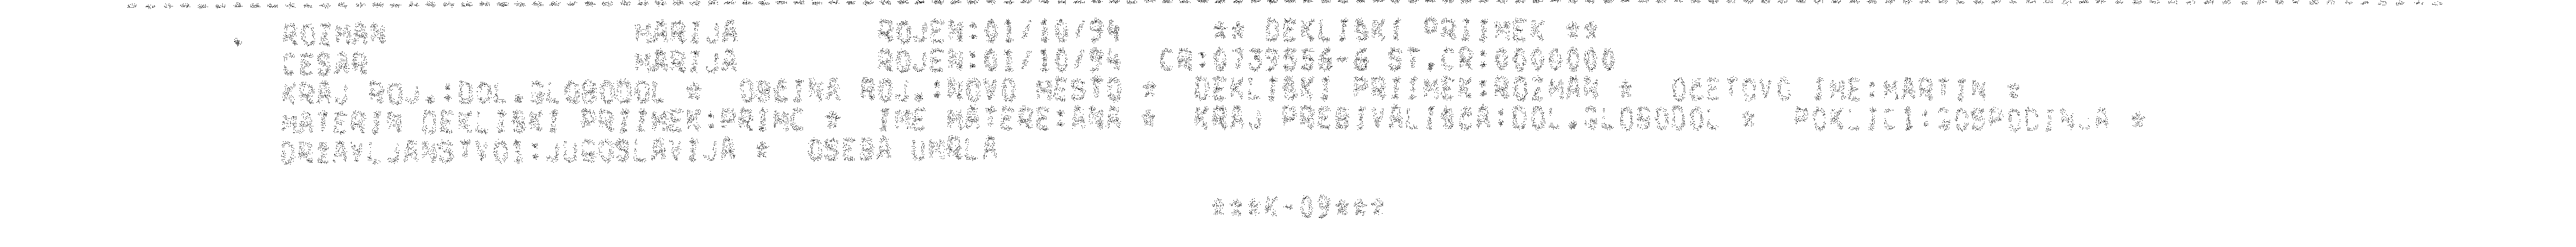 ROZMAN MARIJA ROJEN:01/10/94 ** DEKLISKI PRIIMEK **
CESAR MARIJA ROJEN:01/10/94 CR:0739556-6 ST.CR:0000000
KRAJ ROJ.:DOL.GLOBODOL * OBCINA ROJ.:NOVO MESTO * DEKLISKI PRIIMEK:ROZMAN * OCETOVO IME:MARTIN *
MATERIN DEKLISKI PRIIMEK:PRIMC * IME MATERE:ANA * KRAJ PREBIVALISCA:DOL.GLOBODOL * POKLICI:GOSPODINJA *
DRZAVLJANSTVOI:JUGOSLAVIJA * OSEBA UMRLA
***K-09***